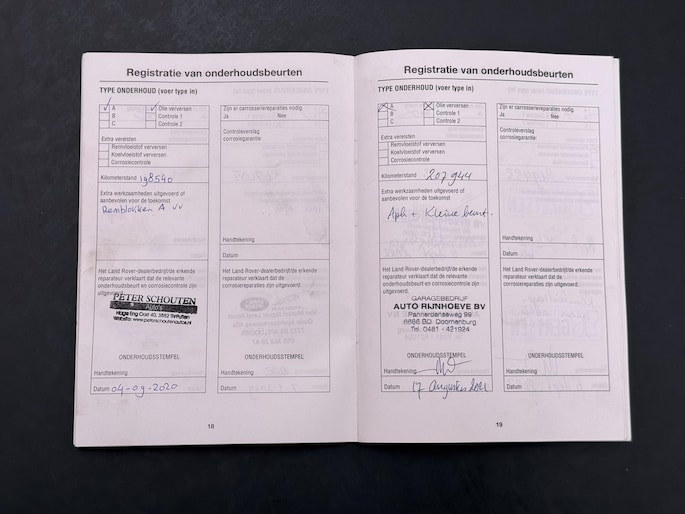 Registratie van onderhoudsbeurten
TYPE ONDERHOUD (voer type in)
A Olie verversen
B Controle 1
C Controle 2
Extra vereisten
Remvloeistof verversen
Koelvloeistof verversen
Corrosiecontrole
Kilometerstand 198540
Extra werkzaamheden uitgevoerd of
aanbevolen voor de toekomst
Remblokken A VV
Het Land Rover-dealerbedrijf/de erkende
reparateur verklaart dat de relevante
onderhoudsbeurt en corrosiecontrole zijn
uitgevoerd.
PETER SCHOUTEN
Auto's
Hoge Eng Oost 40, 3882 TR Putten
Website: www.peterschoutenautos.nl
ONDERHOUDSSTEMPEL
Handtekening
Datum 04-09-2020
Zijn er carrosseriereparaties nodig
Ja Nee
Controleverslag
corrosiegarantie:
Handtekening
Datum
Het Land Rover-dealerbedrijf/de erkende
reparateur verklaart dat de relevante
onderhoudsbeurt en corrosiecontrole zijn
uitgevoerd.
ONDERHOUDSSTEMPEL
Handtekening
Datum
18
Registratie van onderhoudsbeurten
TYPE ONDERHOUD (voer type in)
A Olie verversen
B Controle 1
C Controle 2
Extra vereisten
Remvloeistof verversen
Koelvloeistof verversen
Corrosiecontrole
Kilometerstand 207944
Extra werkzaamheden uitgevoerd of
aanbevolen voor de toekomst
Apk + Kleine beurt.
Het Land Rover-dealerbedrijf/de erkende
reparateur verklaart dat de relevante
onderhoudsbeurt en corrosiecontrole zijn
uitgevoerd.
GARAGEBEDRIJF
AUTO RIJNHOEVE BV
Pannerdenseweg 99
6686 BD Doornenburg
Tel. 0481 - 421924
ONDERHOUDSSTEMPEL
Handtekening
Datum 17 Augustus 2021
Zijn er carrosseriereparaties nodig
Ja Nee
Controleverslag
corrosiegarantie:
Handtekening
Datum
Het Land Rover-dealerbedrijf/de erkende
reparateur verklaart dat de relevante
onderhoudsbeurt en corrosiecontrole zijn
uitgevoerd.
ONDERHOUDSSTEMPEL
Handtekening
Datum
19